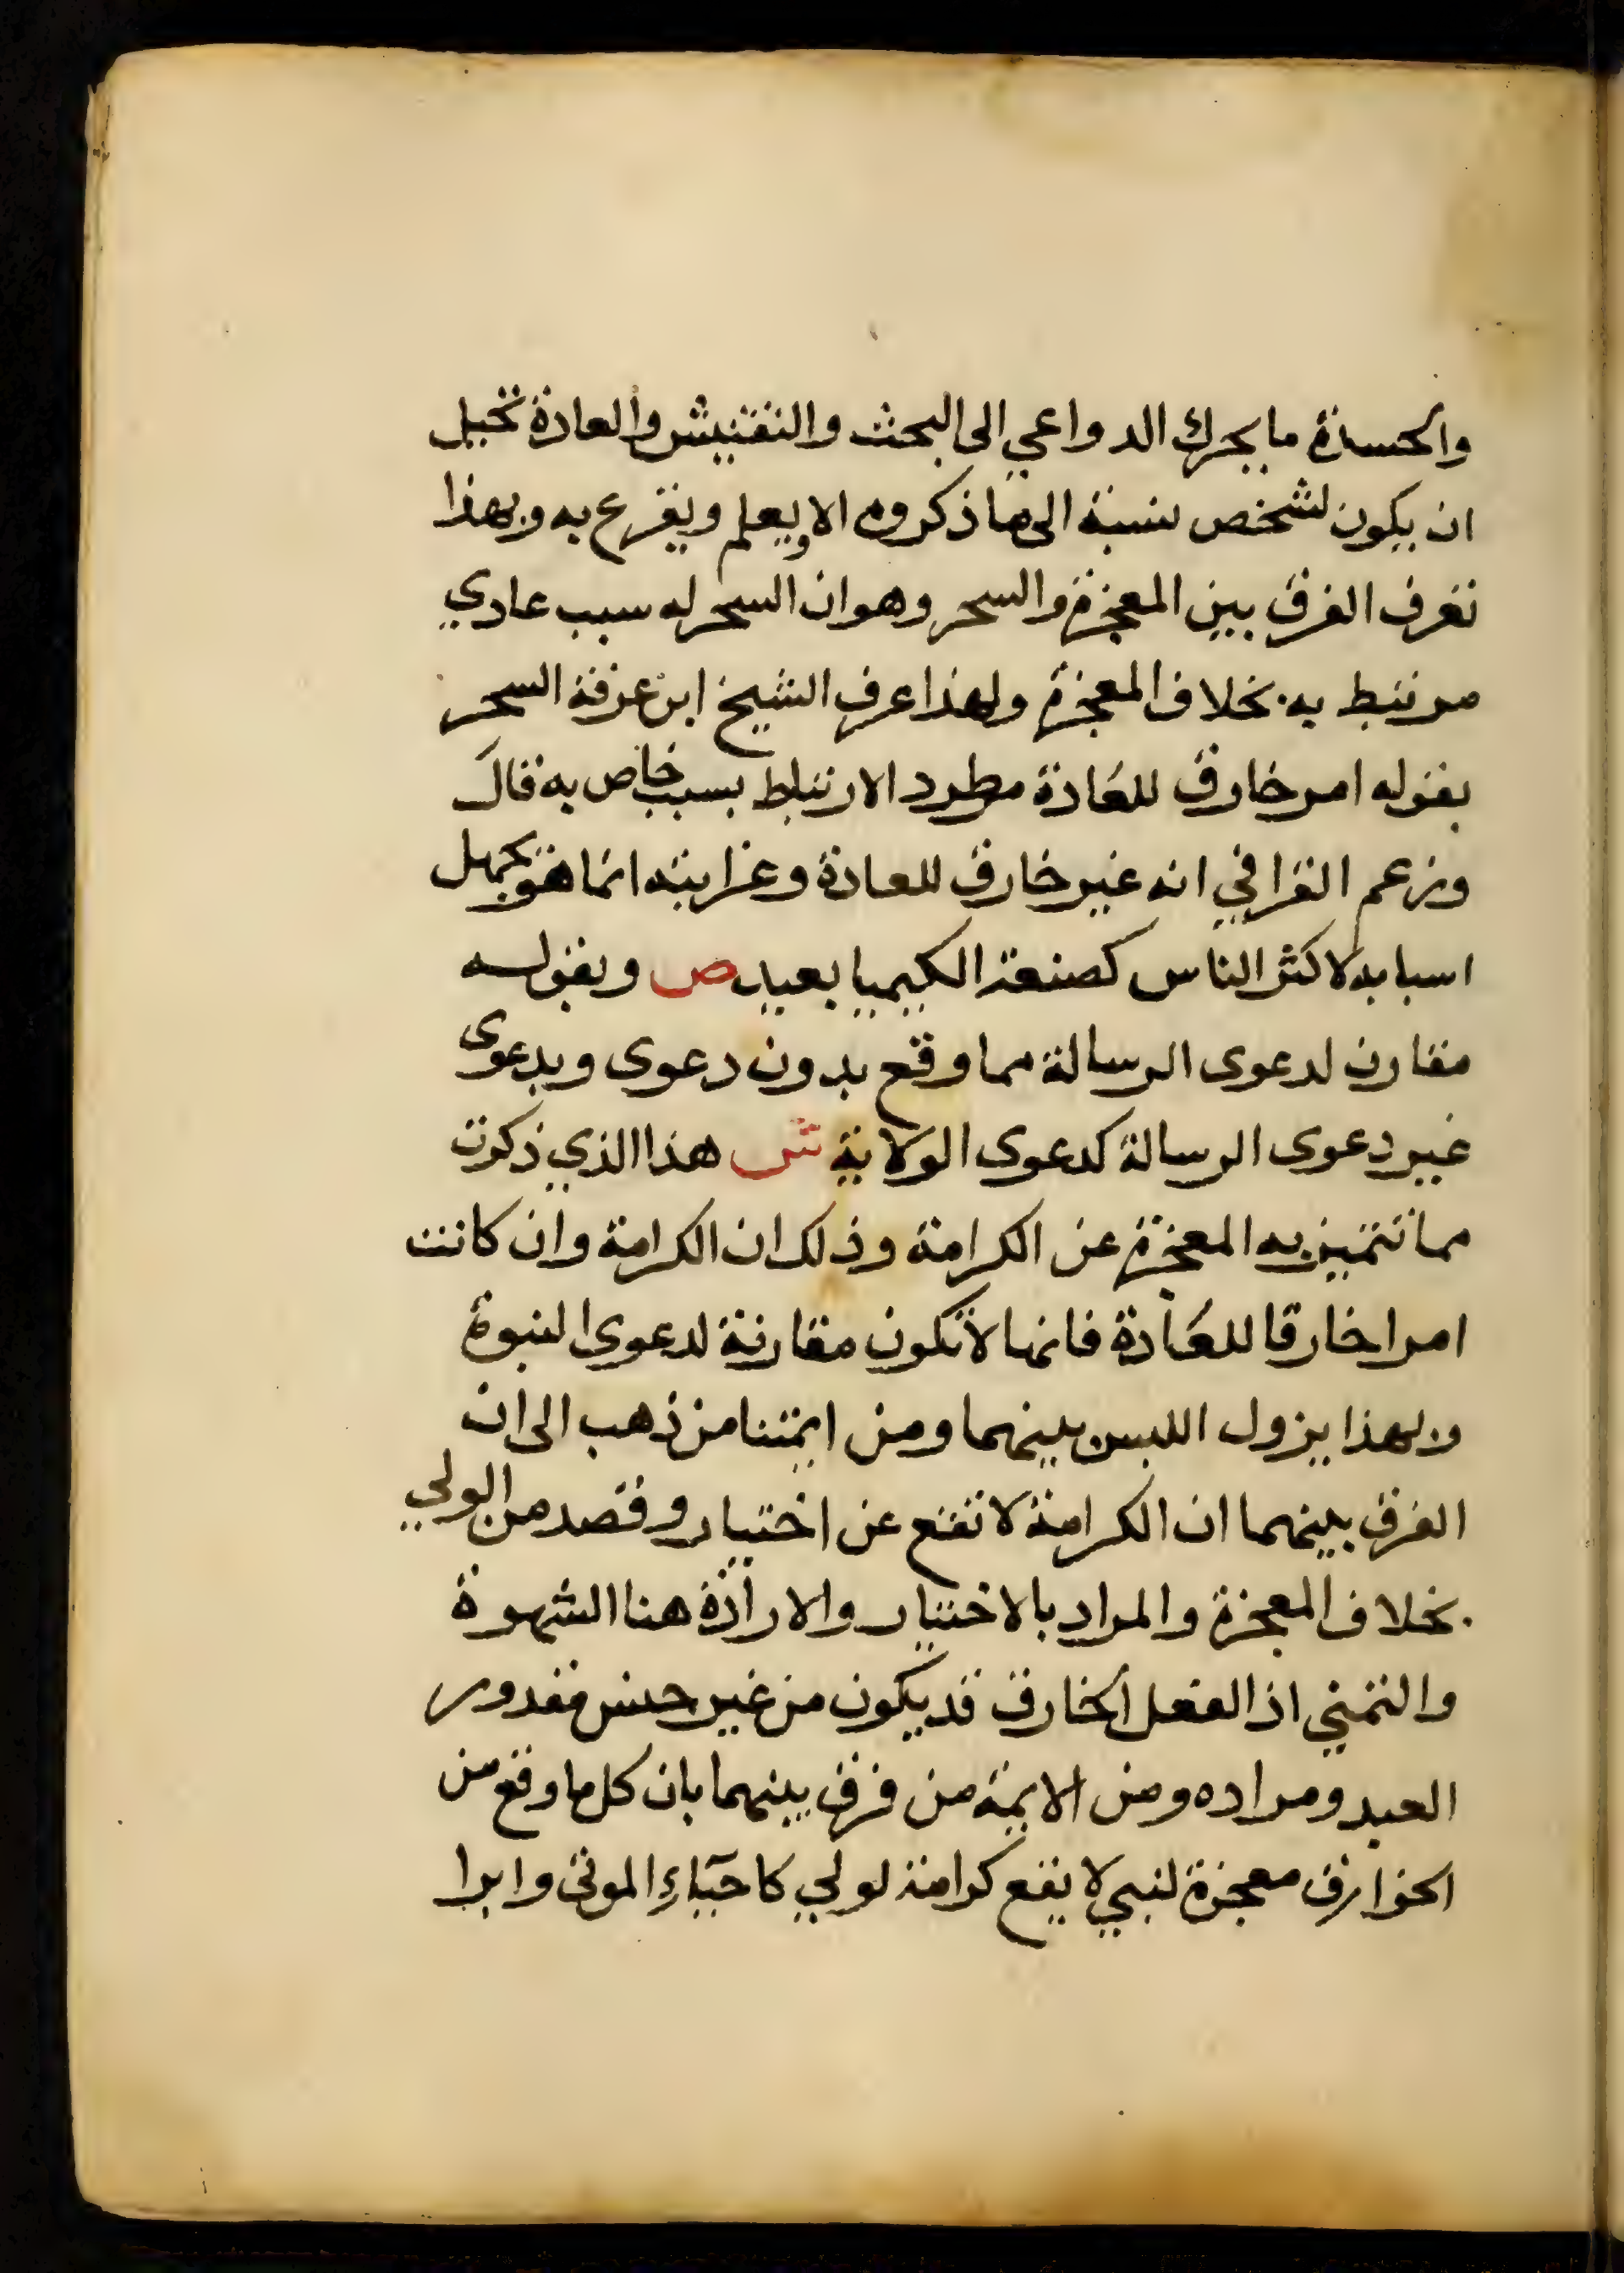 والحسدة ما يحرك الدواعي الى البحث والتفتيش والعادة تحيل
ان يكون لشخص نسبة الى ما ذكروه الا ويعلم ويقرع به وبهذا
تعرف الفرق بين المعجزة والسحر وهو ان السحر له سبب عادي
مرتبط به بخلاف المعجزة ولهذا عرف الشيخ ابن عرفة السحر
بقوله امر خارق للعادة مطرد الارتباط بسبب خاص به قال
وزعم القرافي انه غير خارق للعادة وغرابته انما هو بجهل
اسبابه لاكثر الناس كصنعة الكيميا بعيد ص وبقوله
مقارن لدعوى الرسالة مما وقع بدون دعوى وبدعوى
غير دعوى الرسالة كدعوى الولاية ش هذا الذي ذكرت
مما تتميز به المعجزة عن الكرامة وذلك ان الكرامة وان كانت
امرا خارقا للعادة فانها لا تكون مقارنة لدعوى النبوة
وبهذا يزول اللبس بينهما ومن ايمتنا من ذهب الى ان
الفرق بينهما ان الكرامة لا تقع عن اختيار وقصد من الولي
بخلاف المعجزة والمراد بالاختيار والارادة هنا الشهوة
والتمني اذ الفعل الخارق قد يكون من غير جنس مقدور
العبد ومراده ومن الايمة من فرق بينهما بان كل ما وقع من
الخوارق معجزة لنبي لا يقع كرامة لولي كاحياء الموتى وابرا